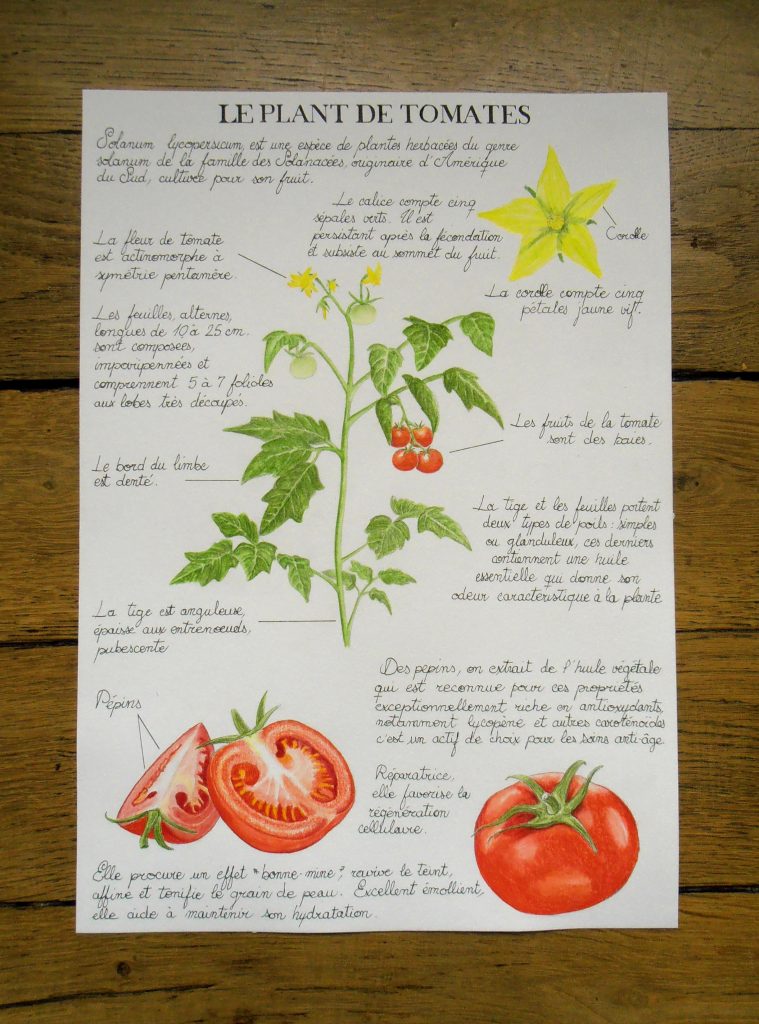 LE PLANT DE TOMATES
Solanum lycopersicum, est une espèce de plantes herbacées du genre
solanum de la famille des Solanacées, originaire d'Amérique
du Sud, cultivée pour son fruit.
Le calice compte cinq
sépales verts. Il est
persistant après la fécondation
et subsiste au sommet du fruit.
Corolle
La fleur de tomate
est actinomorphe à
symétrie pentamère.
La corolle compte cinq
pétales jaune vif.
Les feuilles, alternes,
longues de 10 à 25 cm.
sont composées,
imparipennées et
comprennent 5 à 7 folioles
aux lobes très découpés.
Les fruits de la tomate
sont des baies.
Le bord du limbe
est denté.
La tige et les feuilles portent
deux types de poils : simples
ou glanduleux, ces derniers
contiennent une huile
essentielle qui donne son
odeur caractéristique à la plante
La tige est anguleuse,
épaisse aux entrenoeuds,
pubescente
Des pépins, on extrait de l'huile végétale
qui est reconnue pour ces propriétés
exceptionnellement riche en antioxydants,
notamment lycopène et autres caroténoïdes
c'est un actif de choix pour les soins anti-âge.
Pépins
Réparatrice,
elle favorise la
régénération
cellulaire.
Elle procure un effet "bonne-mine", ravive le teint,
affine et tonifie le grain de peau. Excellent émollient,
elle aide à maintenir son hydratation.